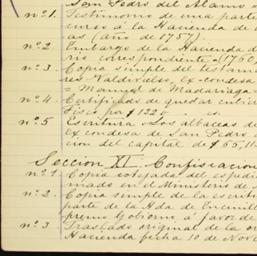 San Pedro del Alamo
nº 1. Testimonio de una parte
curso à la Hacienda de
as (año de 1757)
nº 2. Embargo de la Hacienda d
rio correspondiente = (1760)
nº 3. Copia simple del testamen
res Valdivielso, ex-condesa
= Manuel de Madariaga
nº 4. Certificado de quedar
por $ 122
nº 5 Escritura Los albaceas de
ex. condesa de San Pedro
cion del capital de $ 65,11
Seccion XI Confiscacion
nº 1. Copia cotejada del espedi
mado en el Ministerio de
nº 2. Copia simple de la escrit
parte de la Hda de Encinill
premo Gobierno à favor de
nº 3 Traslado original de la
Hacienda fecha 10 de Nov